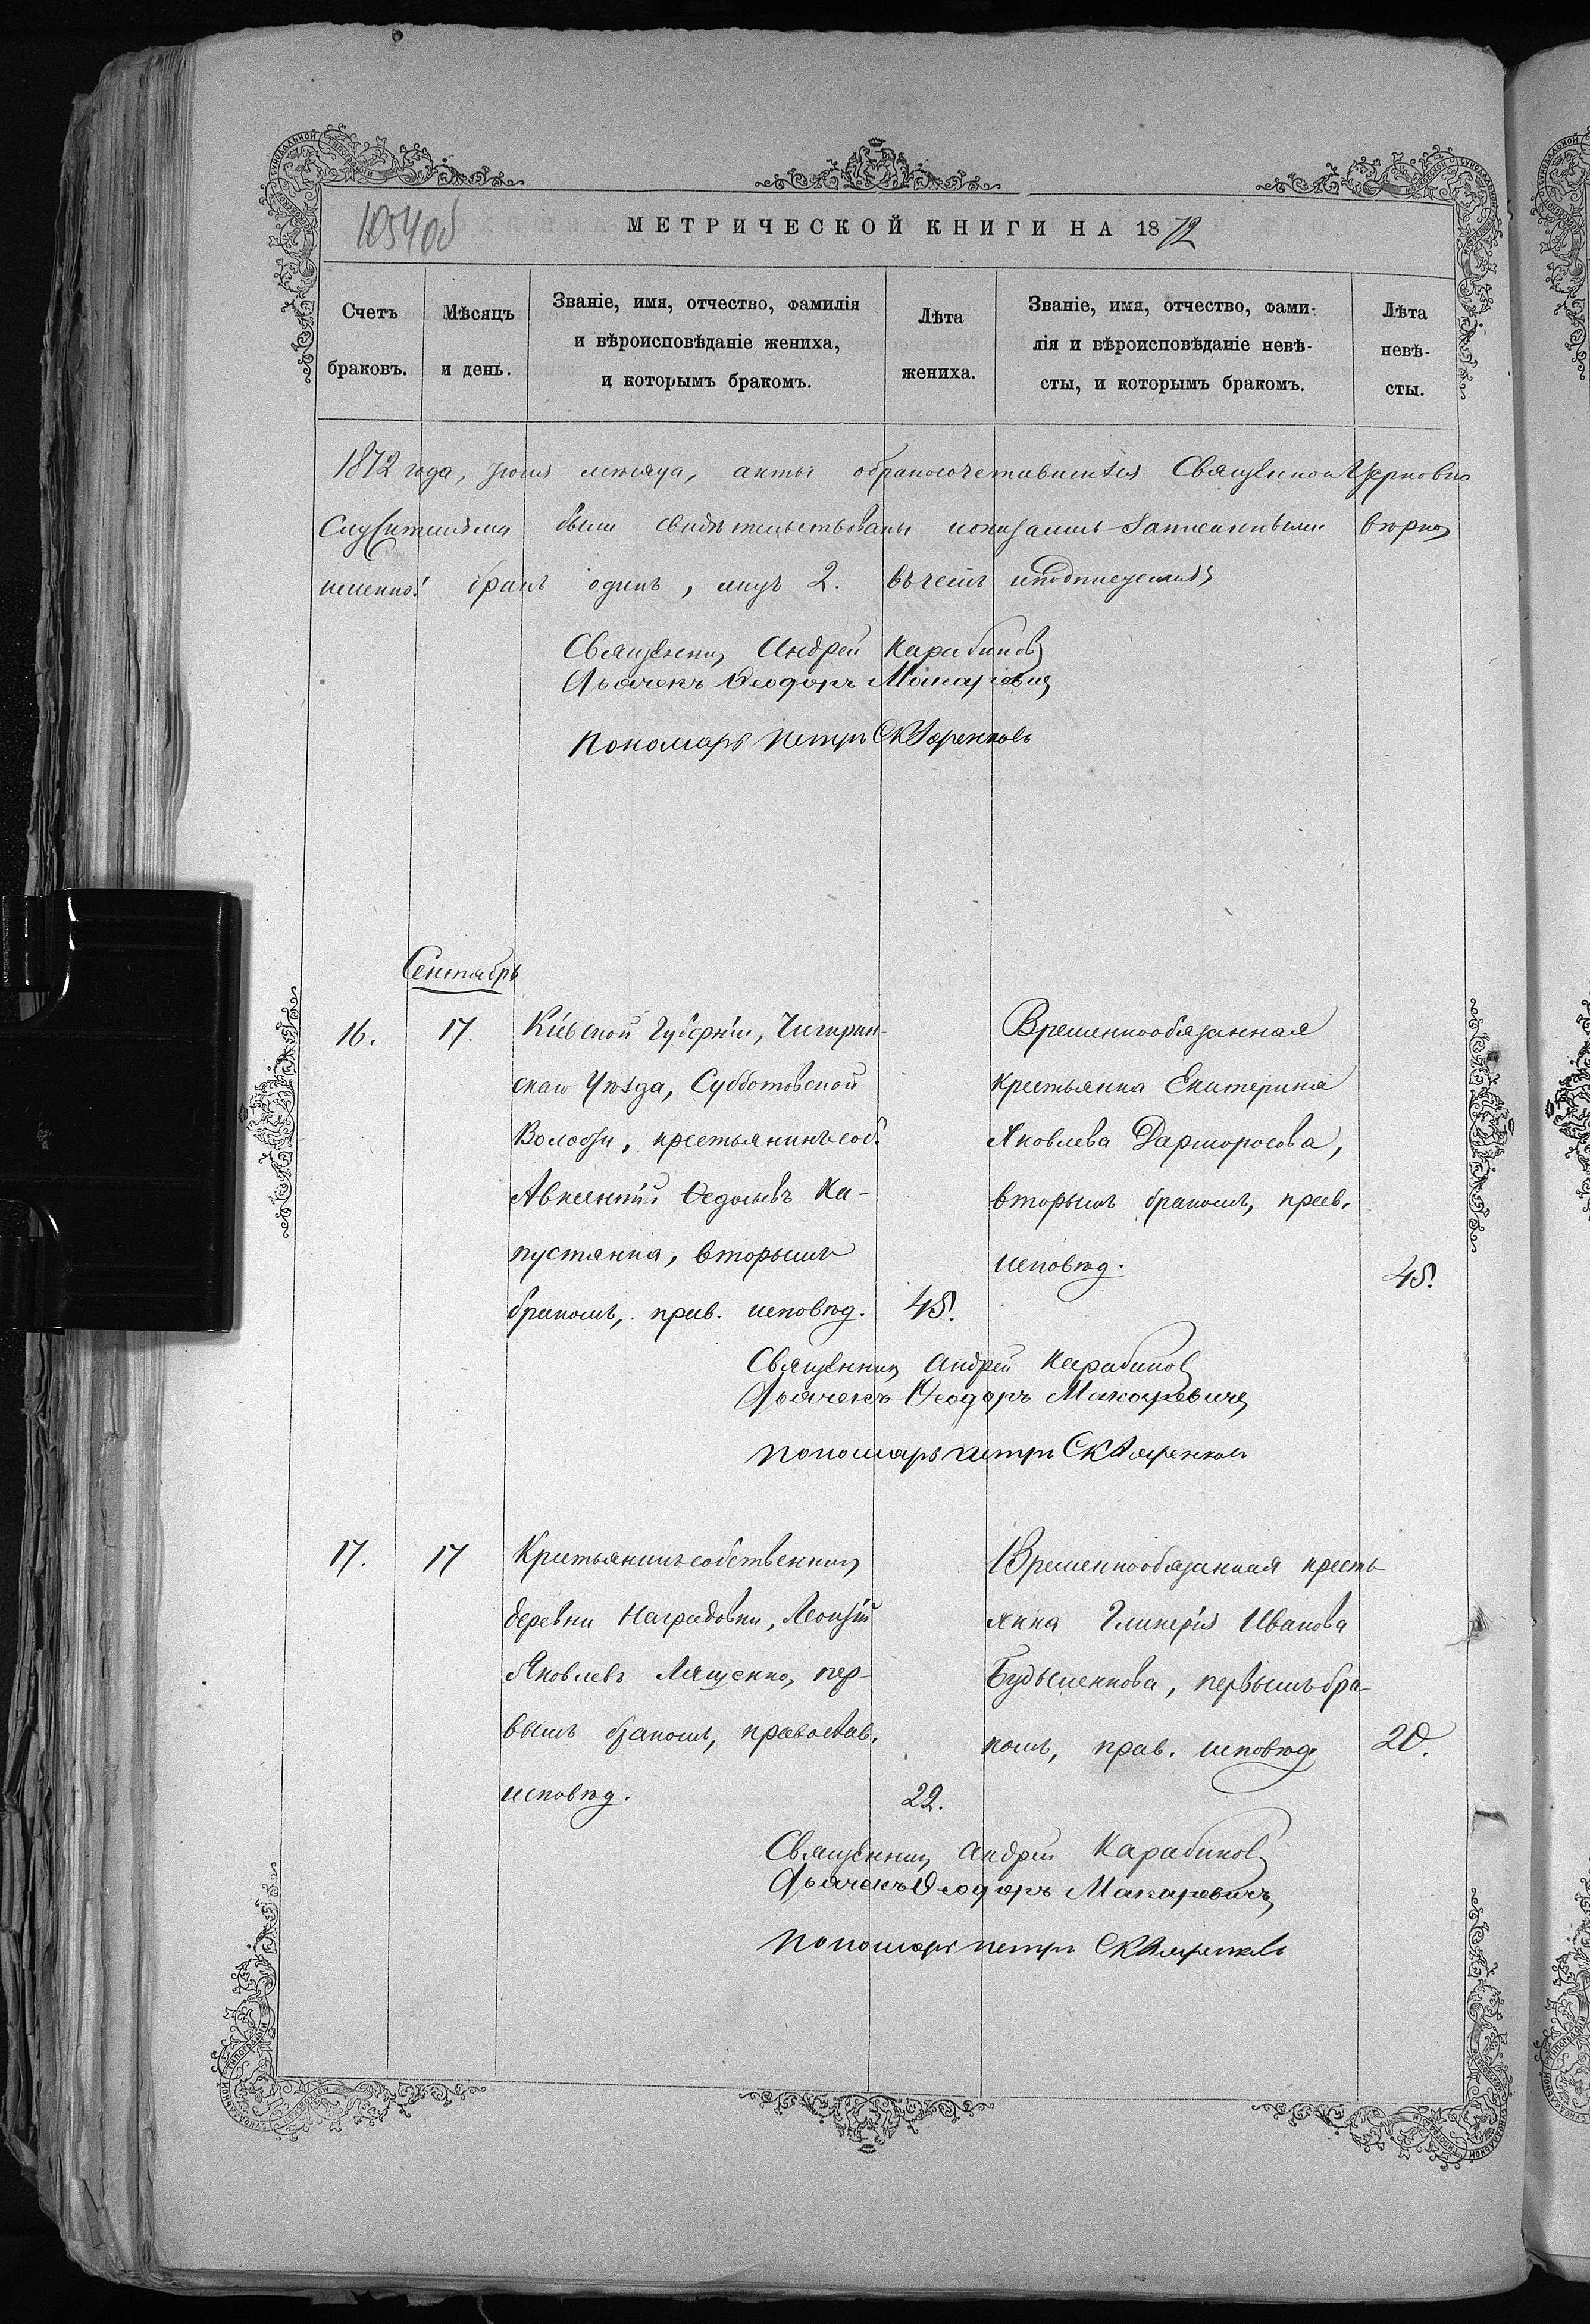 1054об
МЕТРИЧЕСКОЙ КНИГИ НА 1872
Счетъ браковъ.
Мѣсяцъ и день.
Званіе, имя, отчество, фамилія
и вѣроисповѣданіе жениха,
и которымъ бракомъ.
Лѣта жениха.
Званіе, имя, отчество, фами-
лія и вѣроисповѣданіе невѣ-
сты, и которымъ бракомъ.
Лѣта невѣ-
сты.
1872 года, мѣсяца, акты Священно Церковно
Служителями были свидѣтельствованы записанными вѣрно
именно: бракъ одинъ, лицъ 2. въ чемъ и подписуемся
Священникъ Андрей Карабиновъ
Дьячекъ Ѳеодоръ Макаревичъ
Пономарь Петръ
Сентябрь
16. 17.
Кіевской Губерніи, Чигирин-
скаго Уѣзда, Субботовской
Волости, крестьянинъ соб.
Авксентій Ѳедотьевъ Ка-
пустянка, вторымъ
бракомъ, прав. исповѣд.
45.
Временнообязанная
крестьянка Екатерина
Яковлева
вторымъ бракомъ, прав.
исповѣд.
45.
Священникъ Андрей Карабиновъ
Дьячекъ Ѳеодоръ Макаревичъ
Пономарь Петръ
17. 17
Крестьянинъ собственникъ
деревни Леонтій
Яковлевъ Лященко, пер-
вымъ бракомъ, православ.
исповѣд.
22.
Временнообязанная кресть
янка Гликерія Иванова
первымъ бра-
комъ, прав. исповѣд.
20.
Священникъ Андрей Карабиновъ
Дьячекъ Ѳеодоръ Макаревичъ
Пономарь Петръ